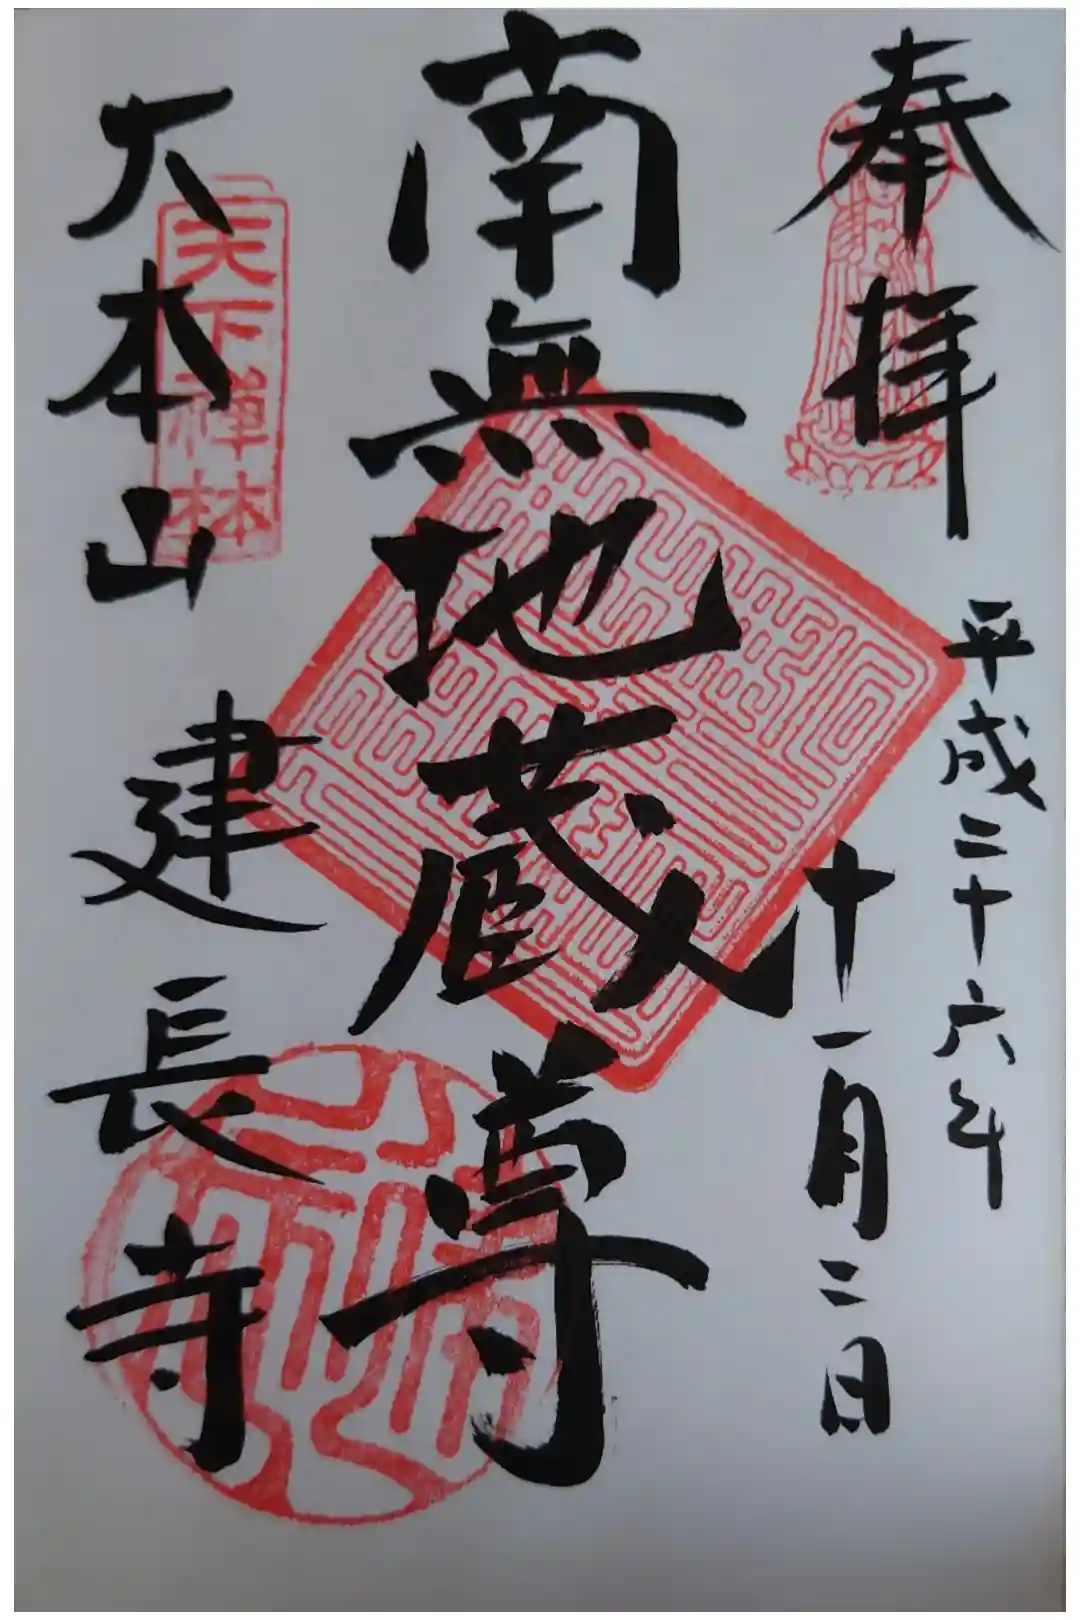 奉拝
平成二十六年
十一月二日
南無地蔵尊
大本山
建長寺
天下禅林